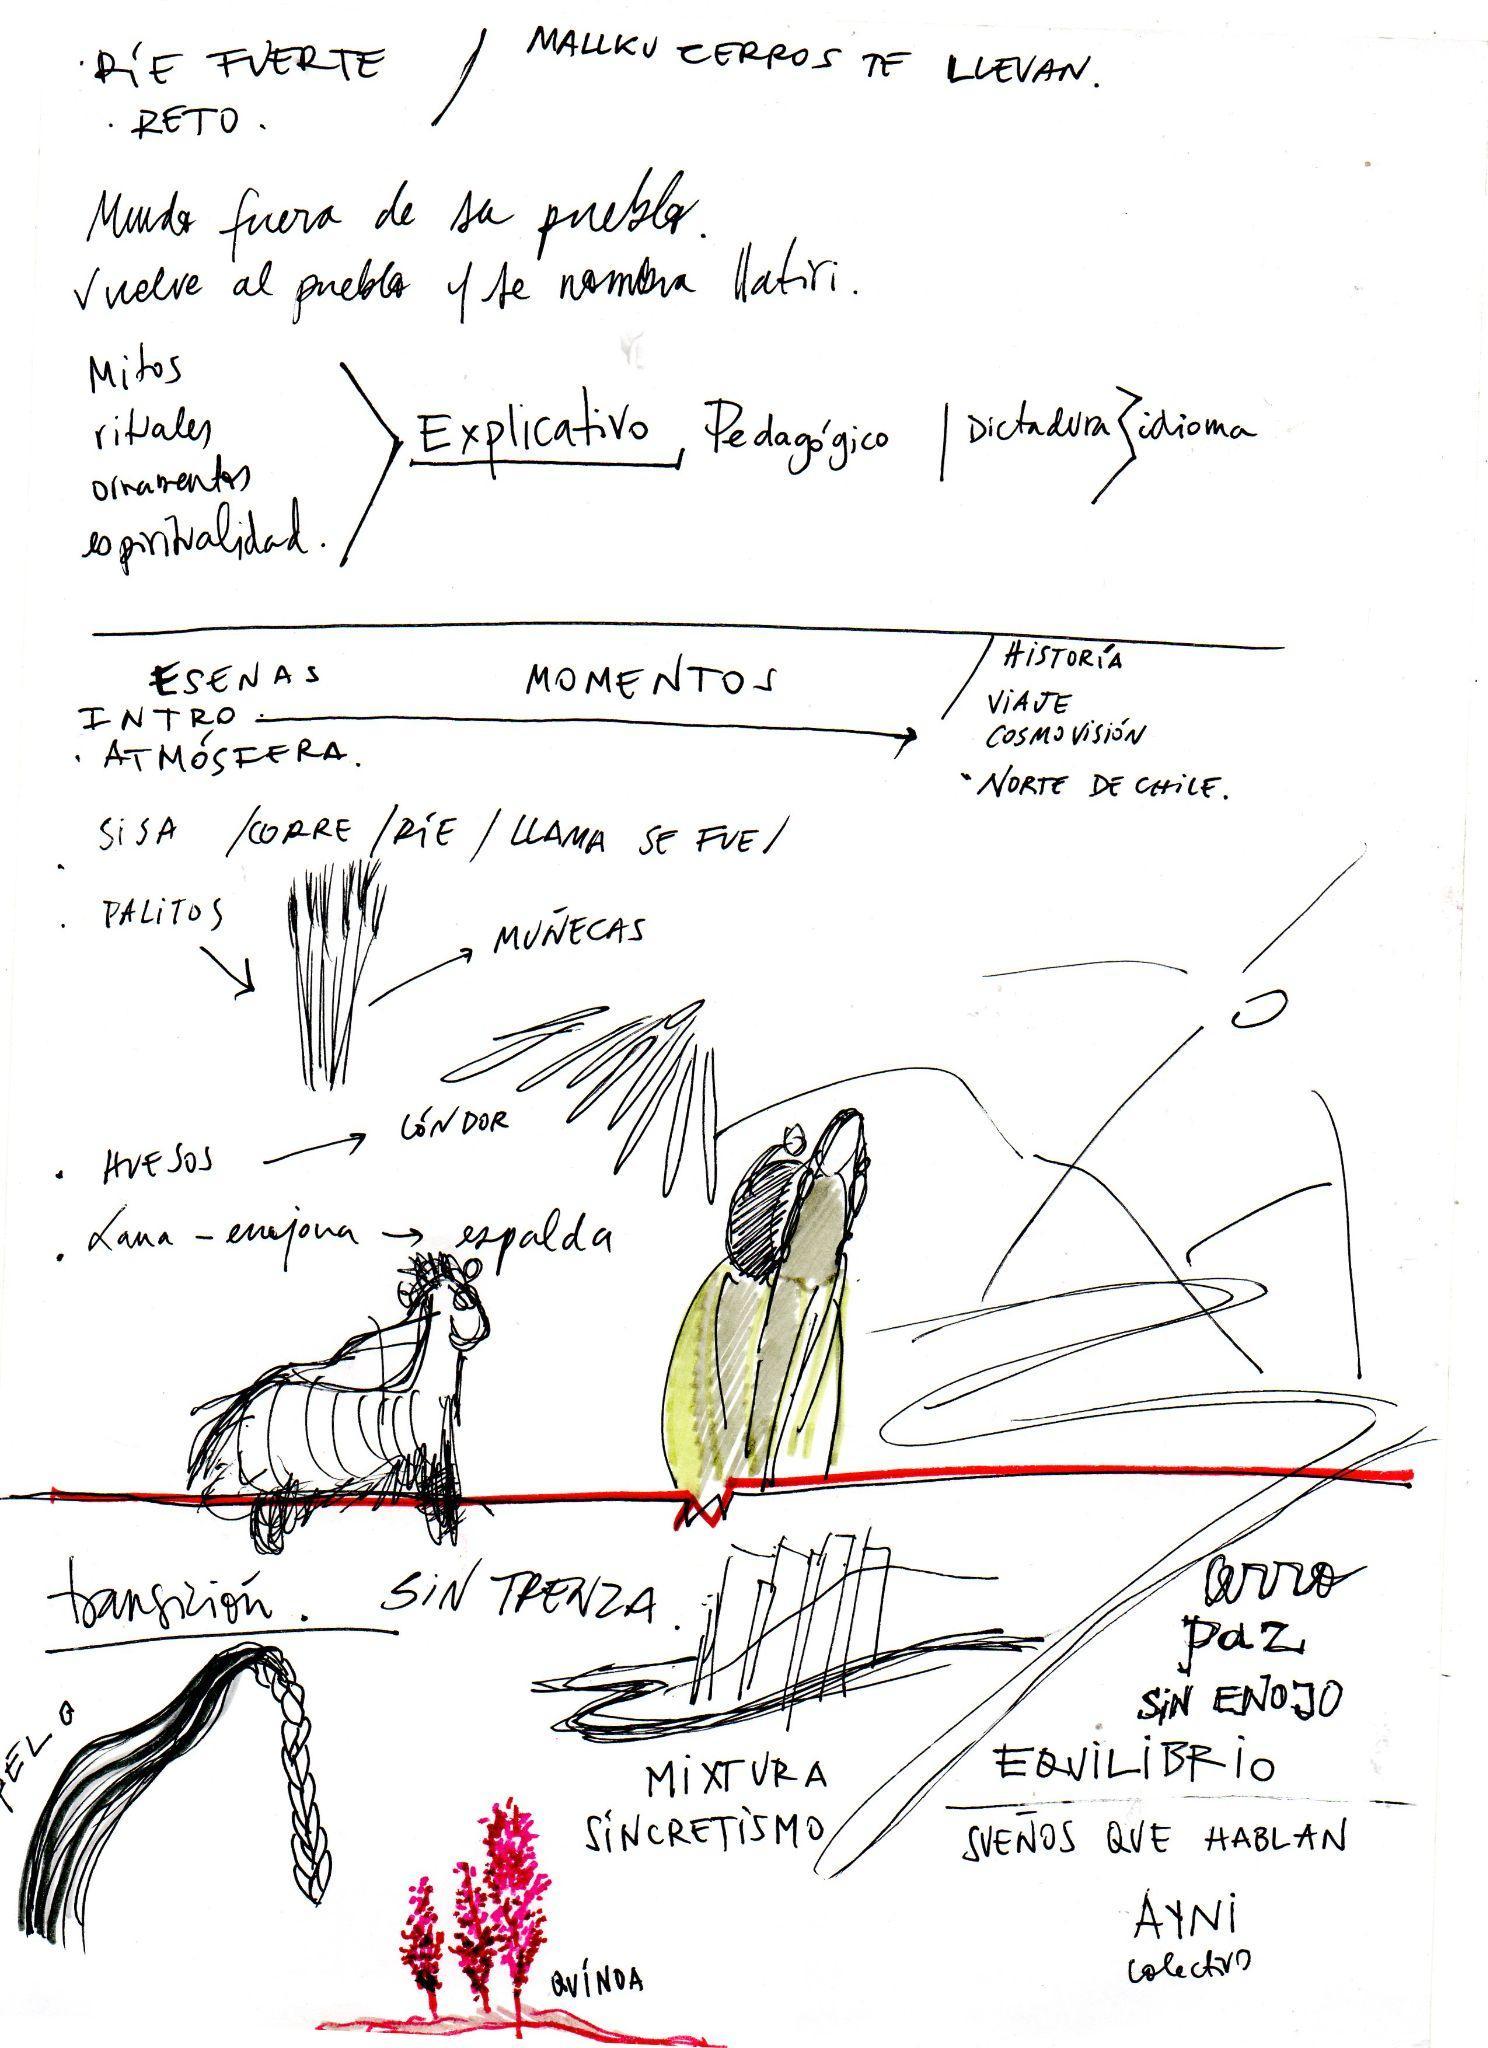 · RÍE FUERTE / MALLKU CERROS TE LLEVAN.
· RETO.
Mundo fuera de su pueblo.
Vuelve al pueblo y se nombra llatiri.
Mitos
rituales
ornamentos
espiritualidad.
Explicativo, Pedagógico | Dictadura } idioma
ESENAS MOMENTOS / HISTORÍA
INTRO. VIAJE
COSMOVISIÓN
· ATMÓSFERA.
· NORTE DE CHILE.
· SISA /CORRE /RÍE / LLAMA SE FUE /
· PALITOS
MUÑECAS
CÓNDOR
· HUESOS
· Lana - enojona → espalda
transición. SIN TRENZA.
PELO
Cerro
paz
SIN ENOJO
EQUILIBRIO
MIXTURA
SÍNCRETISMO
SUEÑOS QUE HABLAN
AYNI
colectivo
QUÍNOA